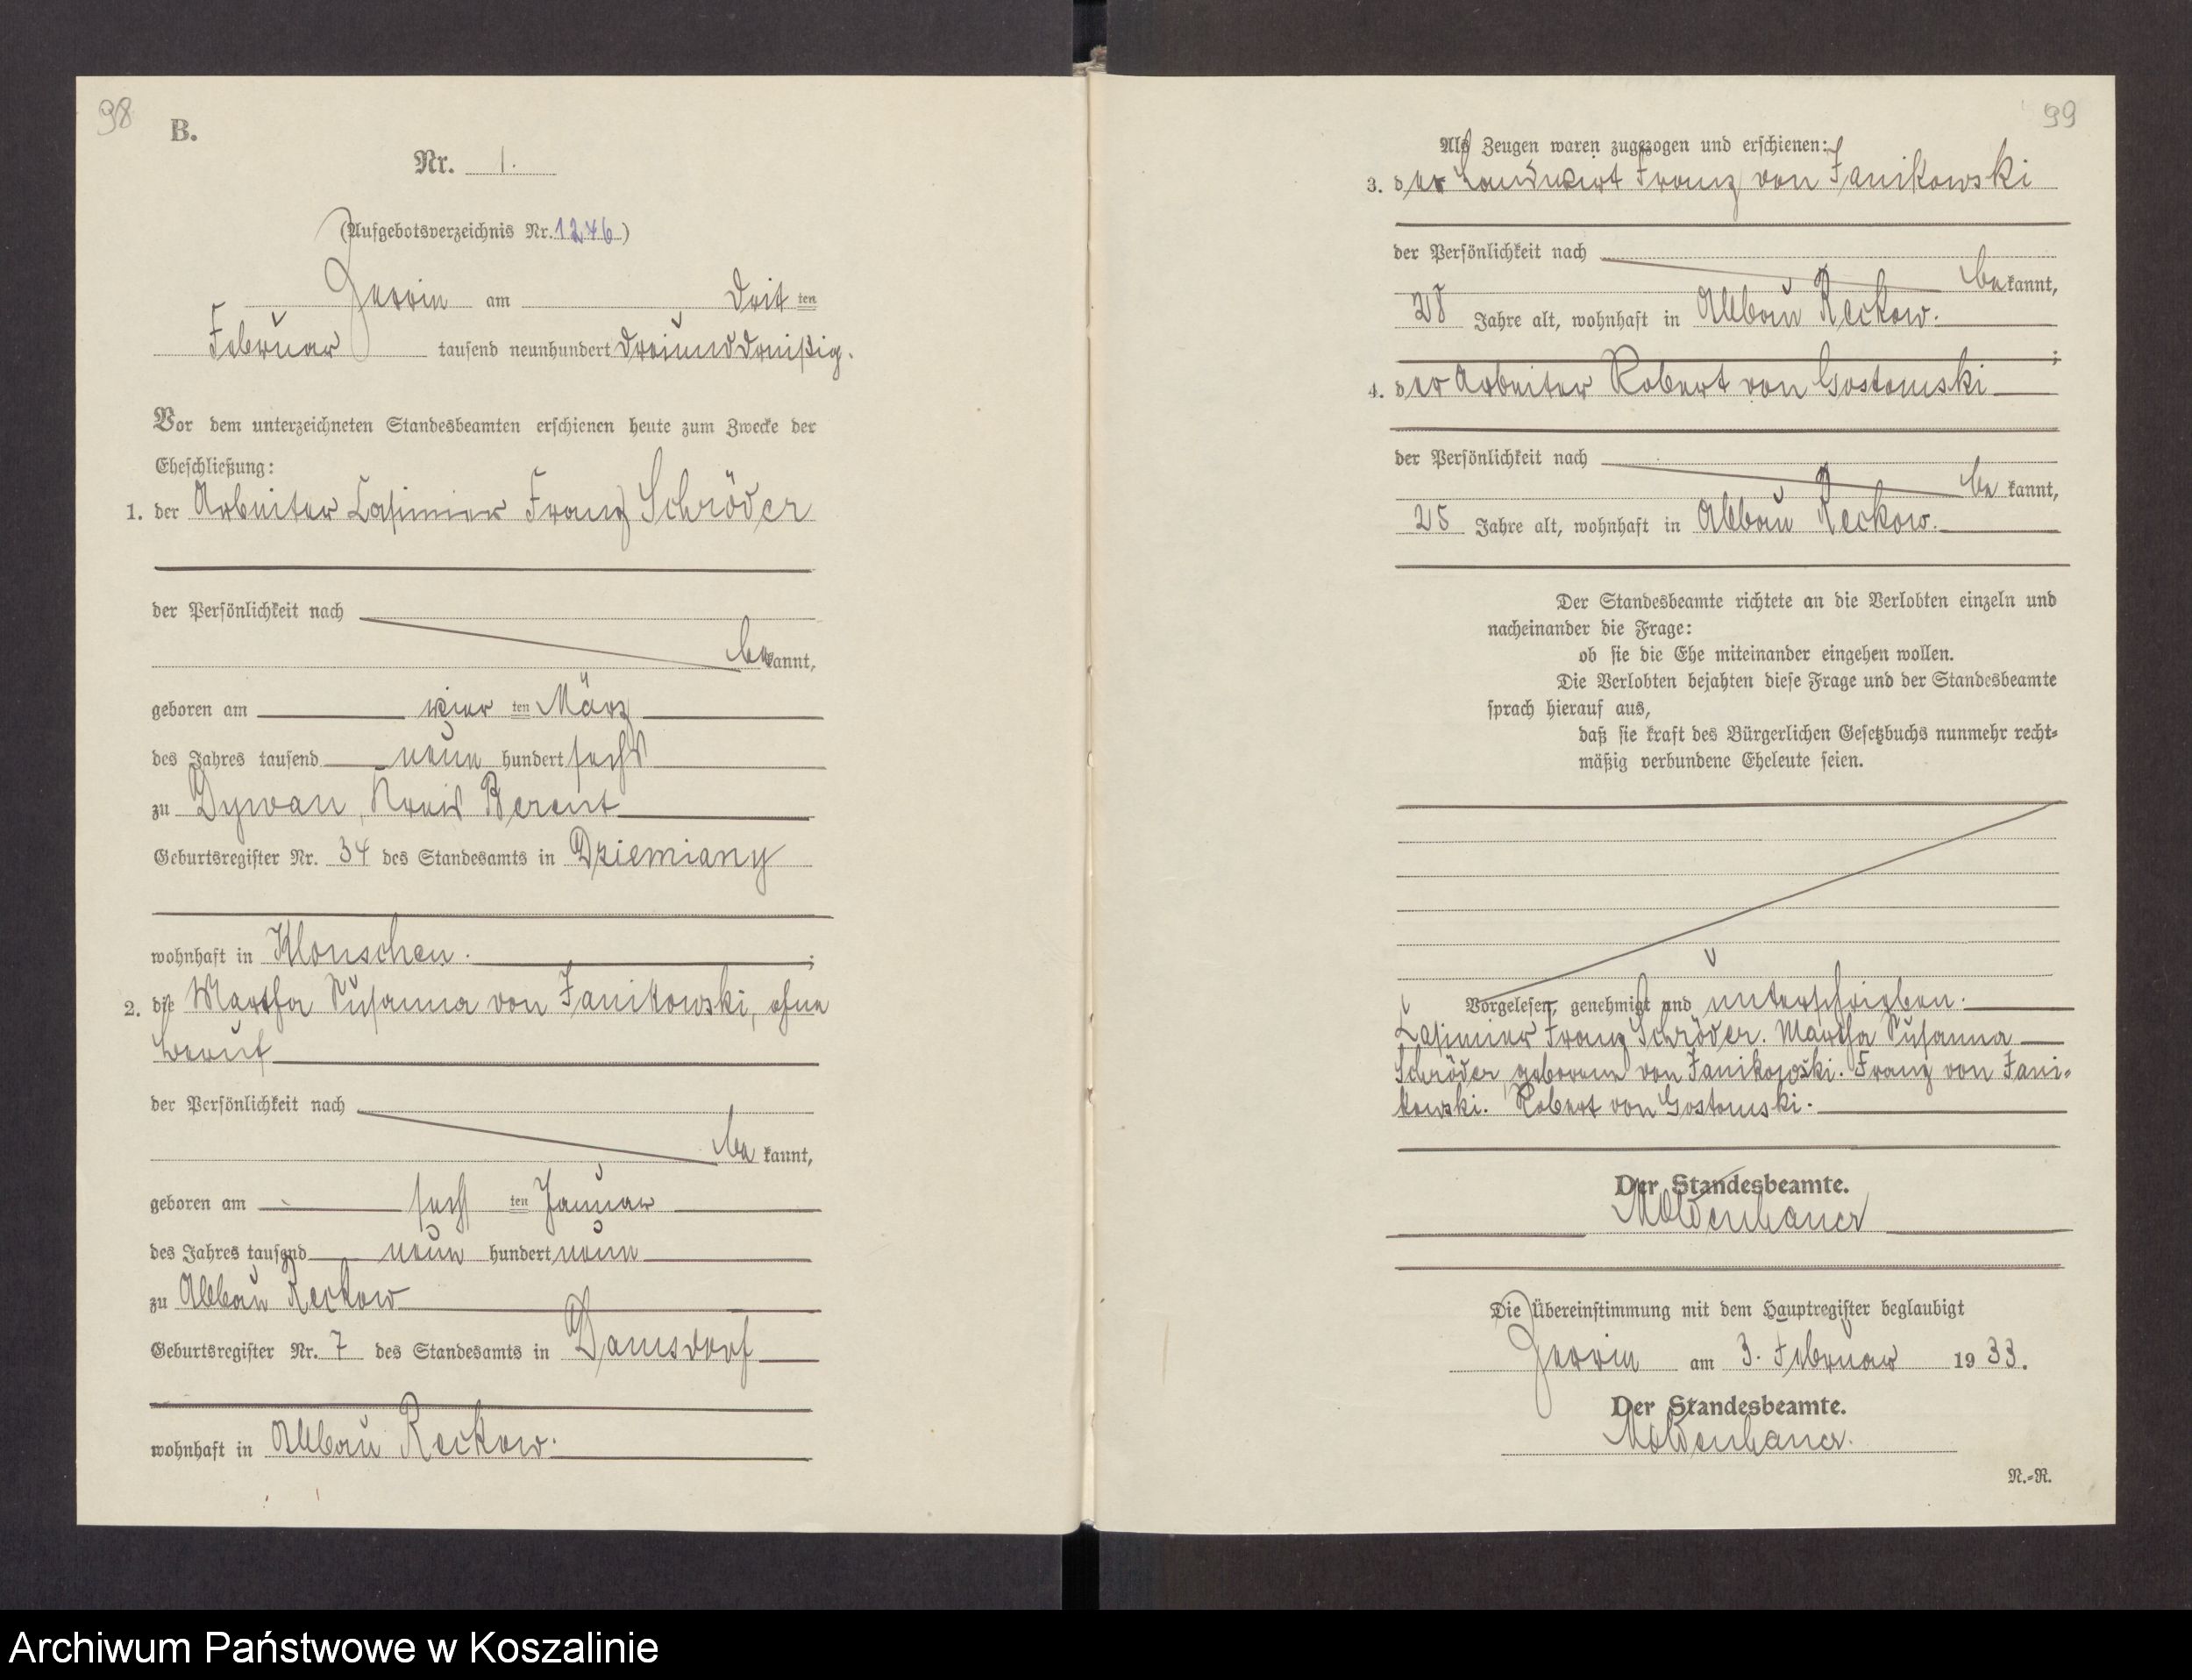 98
B.
Nr. 1.
(Aufgebotsverzeichnis Nr. 1246)
Jerrin am drit ten
Februar tausend neunhundert dreiunddreißig.
Vor dem unterzeichneten Standesbeamten erschienen heute zum Zwecke der
Eheschließung:
1. der Arbeiter Casimier Franz Schröder
der Persönlichkeit nach
be kannt,
geboren am vier ten März
des Jahres tausend neun hundert sechs
zu Dywan, Kreis Berent
Geburtsregister Nr. 34 des Standesamts in Dziemiany
wohnhaft in Klonschen.;
2. die Martha Susanna von Janikowski, ohne
Beruf
der Persönlichkeit nach
be kannt,
geboren am sechs ten Januar
des Jahres tausend neun hundert neun
zu Abbau Reckow
Geburtsregister Nr. 7 des Standesamts in Damsdorf
wohnhaft in Abbau Reckow.
99
Als Zeugen waren zugezogen und erschienen:
3. der Landwirt Franz von Janikowski
der Persönlichkeit nach
be kannt,
28 Jahre alt, wohnhaft in Abbau Reckow.
;
4. der Arbeiter Robert von Gostomski
der Persönlichkeit nach
be kannt,
25 Jahre alt, wohnhaft in Abbau Reckow.
Der Standesbeamte richtete an die Verlobten einzeln und
nacheinander die Frage:
ob sie die Ehe miteinander eingehen wollen.
Die Verlobten bejahten diese Frage und der Standesbeamte
sprach hierauf aus,
daß sie kraft des Bürgerlichen Gesetzbuchs nunmehr recht-
mäßig verbundene Eheleute seien.
Vorgelesen, genehmigt und unterschrieben.
Casimier Franz Schröder. Martha Susanna
Schröder geborene von Janikowski. Franz von Jani-
kowski. Robert von Gostomski.
Der Standesbeamte.
Moldenhauer
Die Übereinstimmung mit dem Hauptregister beglaubigt
Jerrin am 3. Februar 19 33.
Der Standesbeamte.
Moldenhauer.
N.-R.
Archiwum Państwowe w Koszalinie